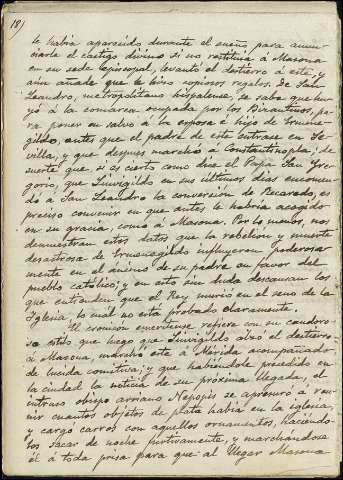 12)
le habia aparecido durante el sueño, para anun-
ciarle el castigo divino si no restituia á Masona
en su sede Episcopal, levantó el destierro á este, y
aún añade que le hizo copiosos regalos. De San
Leandro, metropolitano hispalense, se sabe que hu-
yó á la comarca ocupada por los Bizantinos, pa-
ra poner en salvo á la esposa é hijo de Ermene-
gildo, antes que el padre de este entrase en Se-
villa, y que despues marchó á Constantinopla; de
suerte que si es cierto como dice el Papa San Gre-
gorio, que Leuvigildo en sus últimos dias encomen-
dó á San Leandro la conversión de Recaredo, es
preciso convenir en que antes le habria acogido
en su gracia, como á Masona. Por lo menos, nos
demuestran estos datos que la rebelión y muerte
desastrosa de Ermenegildo influyeron poderosa-
mente en el ánimo de su padre en favor del
pueblo católico; y en esto sin duda descansan los
que entienden que el Rey murió en el seno de la
Iglesia, lo cual no está probado claramente.
El cronicon emeritense refiere con su candoro-
so estilo que luego que Leuvigildo alzó el destierro
á Masona, marchó este á Mérida acompañado
de lucida comitiva; y que habiendole precedido en
la ciudad la noticia de su próxima llegada, el
intruso obispo arriano Nepopis se apresuró á reu-
nir cuantos objetos de plata habia en la iglesia,
y cargó carros con aquellos ornamentos, haciendo-
los sacar de noche furtivamente, y marchándose
él á toda prisa para que al llegar Masona